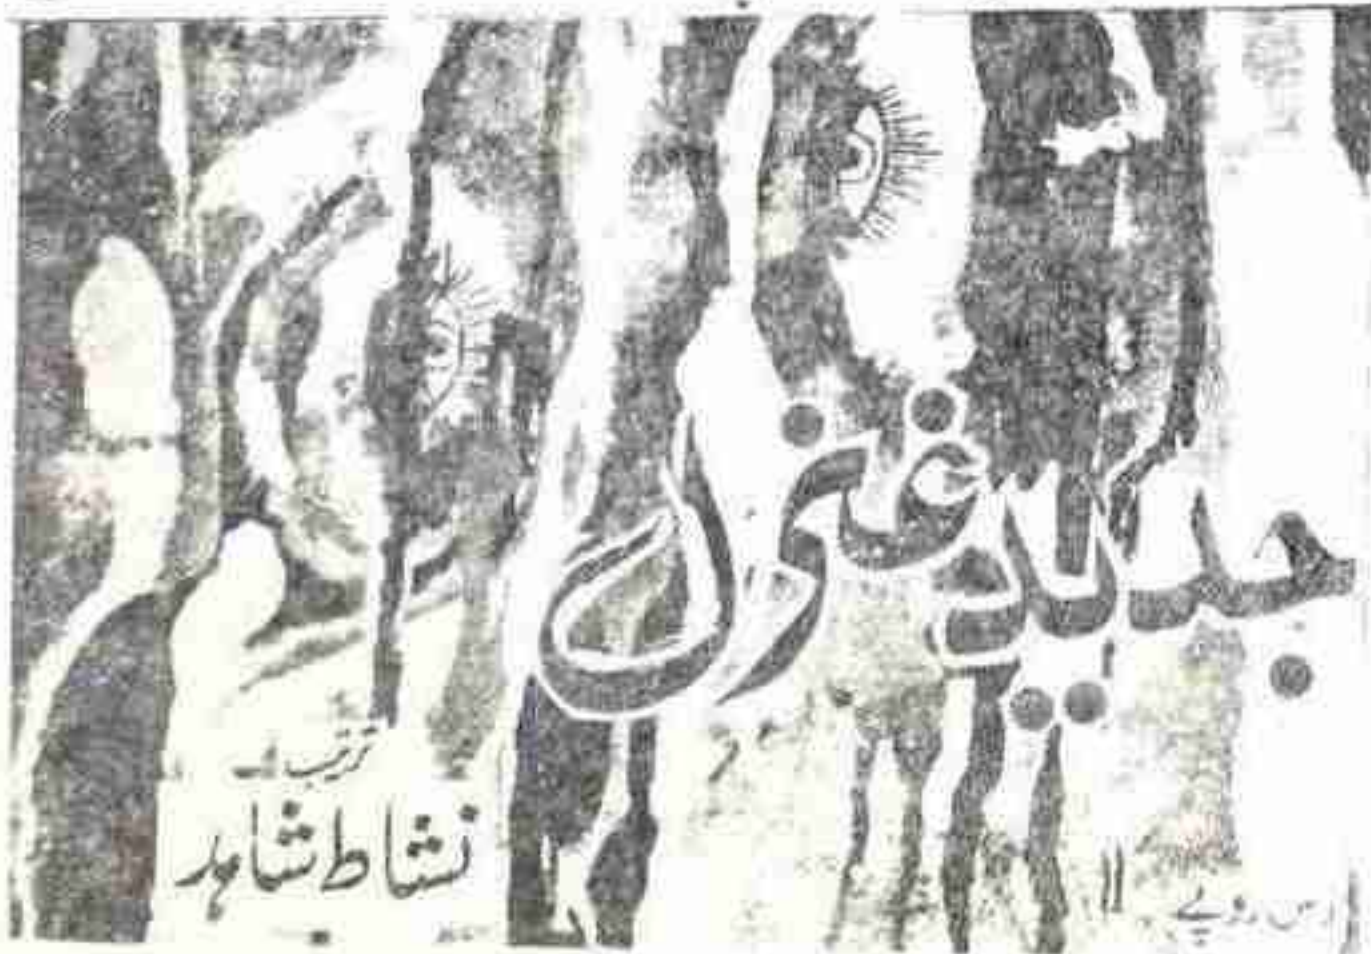 جدید غزل
ترتیب
نشاط شاہد
دس روپے